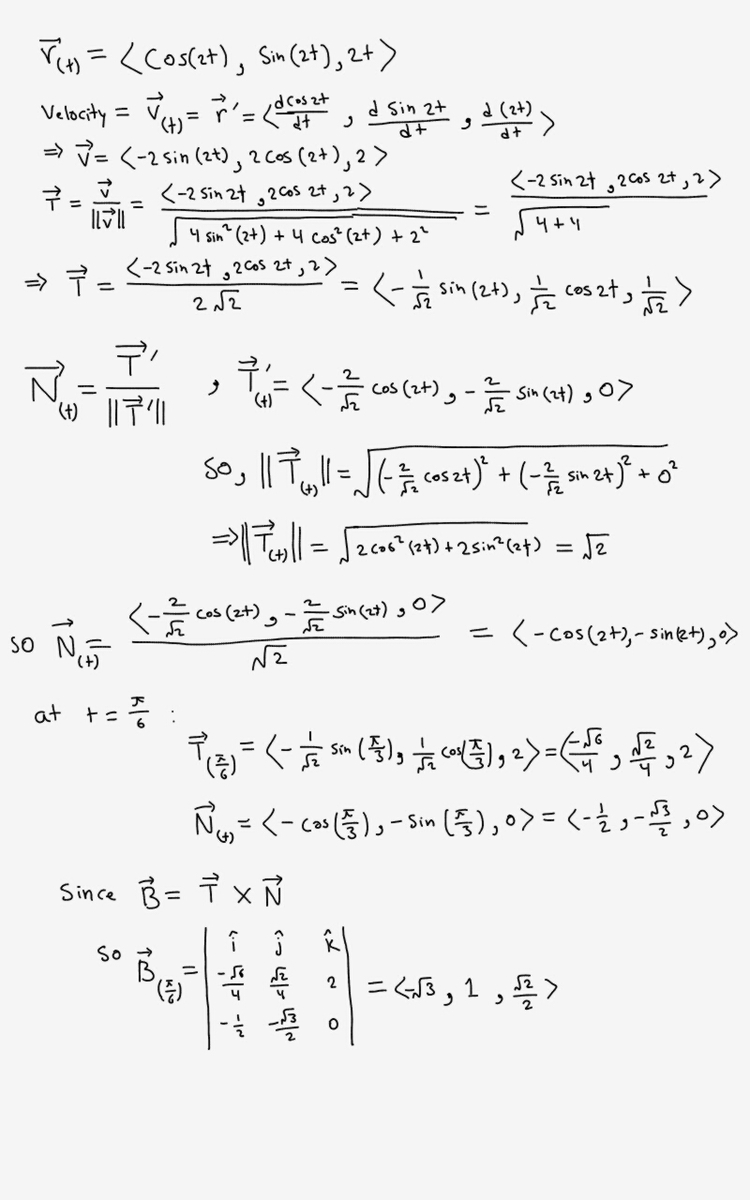 r⃗(t) = ⟨Cos(2t), Sin(2t), 2t⟩
Velocity = v⃗(t) = r⃗' = ⟨d cos 2t/dt, d sin 2t/dt, d(2t)/dt⟩
⇒ v⃗ = ⟨-2 sin(2t), 2 cos(2t), 2⟩
T⃗ = v⃗/||v⃗|| = ⟨-2 sin 2t, 2 cos 2t, 2⟩/√(4 sin²(2t) + 4 cos²(2t) + 2²) = ⟨-2 sin 2t, 2 cos 2t, 2⟩/√(4+4)
⇒ T⃗ = ⟨-2 sin 2t, 2 cos 2t, 2⟩/(2√2) = ⟨-1/√2 sin(2t), 1/√2 cos 2t, 1/√2⟩
N⃗(t) = T⃗'/||T⃗'|| , T⃗'(t) = ⟨-2/√2 cos(2t), -2/√2 sin(2t), 0⟩
So, ||T⃗(t)|| = √((-2/√2 cos 2t)² + (-2/√2 sin 2t)² + 0²)
⇒ ||T⃗(t)|| = √(2 cos²(2t) + 2 sin²(2t)) = √2
so N⃗(t) = ⟨-2/√2 cos(2t), -2/√2 sin(2t), 0⟩/√2 = ⟨-cos(2t), -sin(2t), 0⟩
at t = π/6 :
T⃗(π/6) = ⟨-1/√2 sin(π/3), 1/√2 cos(π/3), 2⟩ = ⟨-√6/4, √2/4, 2⟩
N⃗(t) = ⟨-cos(π/3), -sin(π/3), 0⟩ = ⟨-1/2, -√3/2, 0⟩
Since B⃗ = T⃗ × N⃗
So B⃗(π/6) = | î ĵ k̂ ; -√6/4 √2/4 2 ; -1/2 -√3/2 0 | = ⟨-√3, 1, √2/2⟩